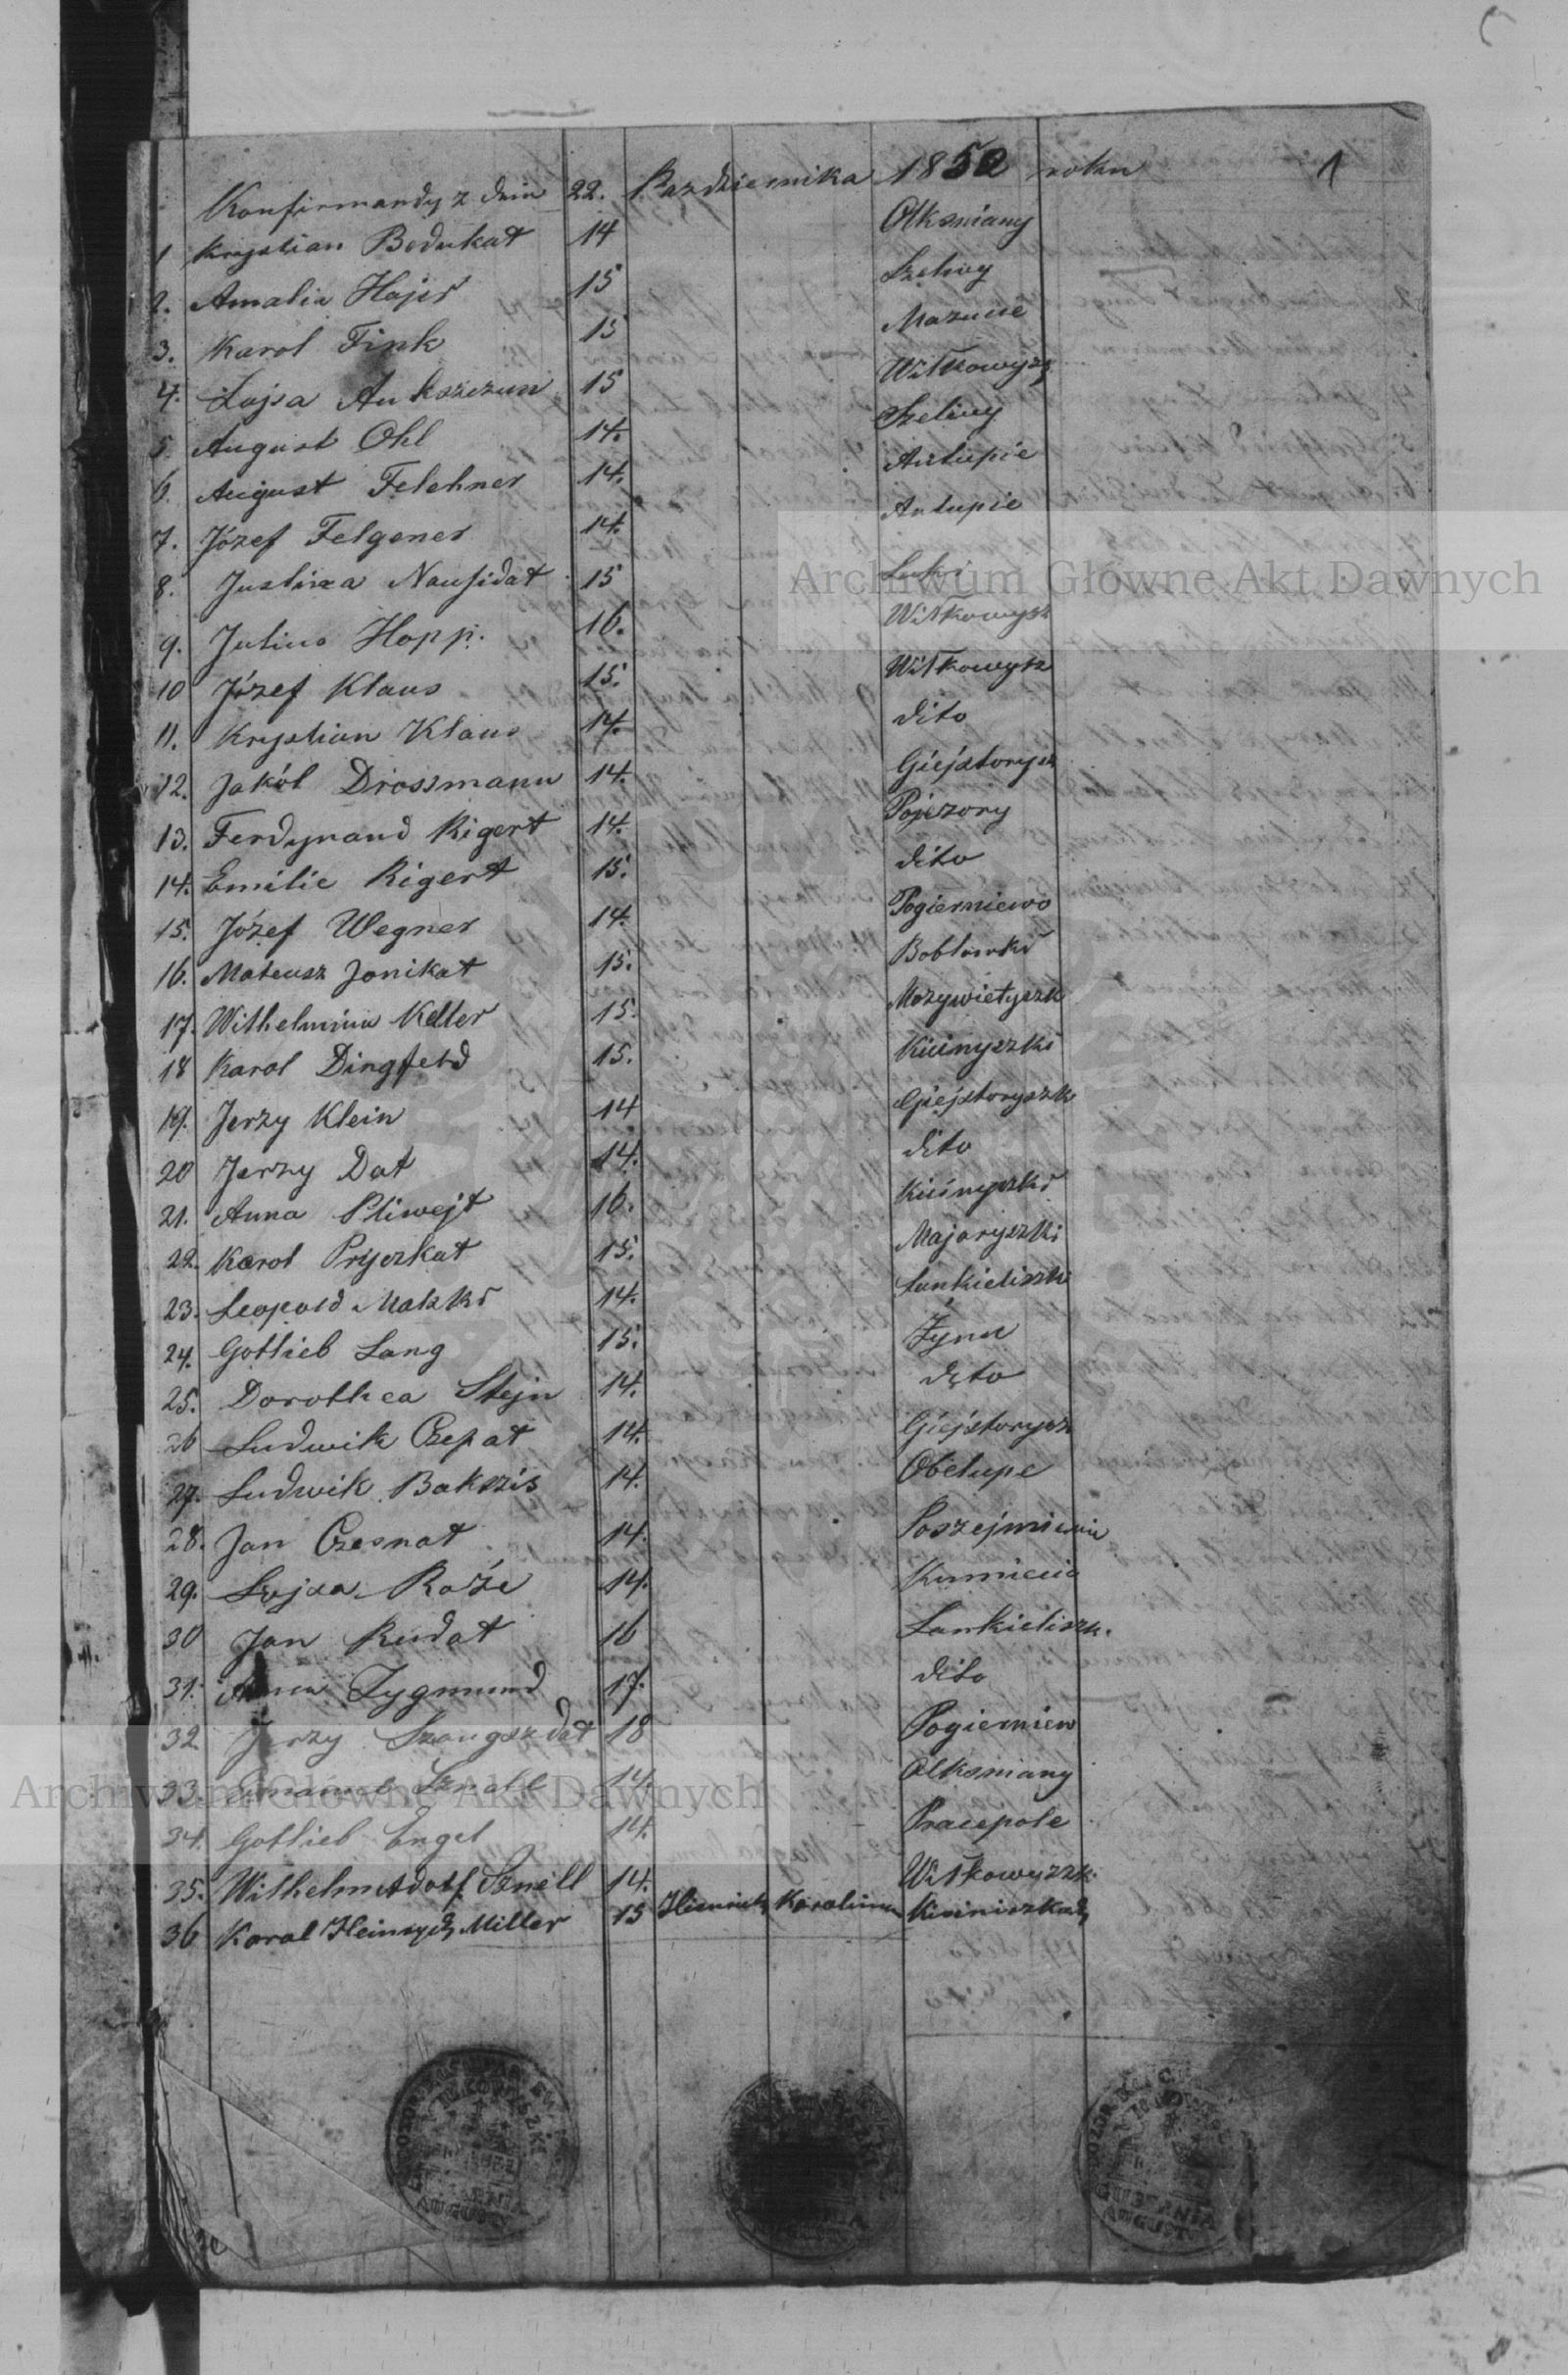 1
Konfirmandy z dnia 22. Pazdziernika 1850 roku
1 Krystian Bedukat 14 Olksniany
2. Amalia Hajer 15 Szelwy
3. Karol Fink 15 Mazucie
4. Lojsa Aukszczun 15 Wiłkowyszg
5. August Ohl 14. Szelwy
6. August Felchner 14. Antupie
7. Józef Felgener 14. Antupie
8. Justina Nausidat 15
9. Julius Hopp. 16. Wiłkowysz
10 Józef Klaus 15. Wiłkowysz
11. Krystian Klaus 14. dito
12. Jakób Drossmann 14. Giejstorysz
13. Ferdynand Rigert 14. Pojezory
14. Emilie Rigert 15. dito
15. Józef Wegner 14. Pogierniewo
16. Mateusz Jonikat 15. Bobłowki
17. Wilhelmina Keller 15. Mozywietyszk
18 Karol Dingfeld 15. Kiśinyszki
19. Jerzy Klein 14 Giejstoryszk
20 Jerzy Dat 14. dito
21. Anna Pliwejt 16. Kiśinyszki
22. Karol Pryszkat 15. Majoryszki
23. Leopold Matzki 14. Lankieliszk
24. Gottlieb Lang 15. Żynu
25. Dorothea Stejn 14. dyto
26 Ludwik Czepat 14. Giejstorysz
27. Ludwik Bakszis 14. Obelupe
28. Jan Czesnat 14. Poszejmienie
29. Lojsa Roże 14.
30 Jan Rudat 16 Lankieliszk.
31. Anna Zygmund 17. dito
32 Jerzy Szaugszdat 18 Pogierniew
33. Emanuel Sznell 14. Olksniany
34. Gottlieb Engel 14. Pracepole
35. Wilhelm Adolf Sznell 14. Wiłkowyszk.
36 Karol Heinrych Miller 15 Heinrich Karolina Kisiniszkach
GUBERNIA
AUGUST
Archiwum Główne Akt Dawnych
Archiwum Główne Akt Dawnych